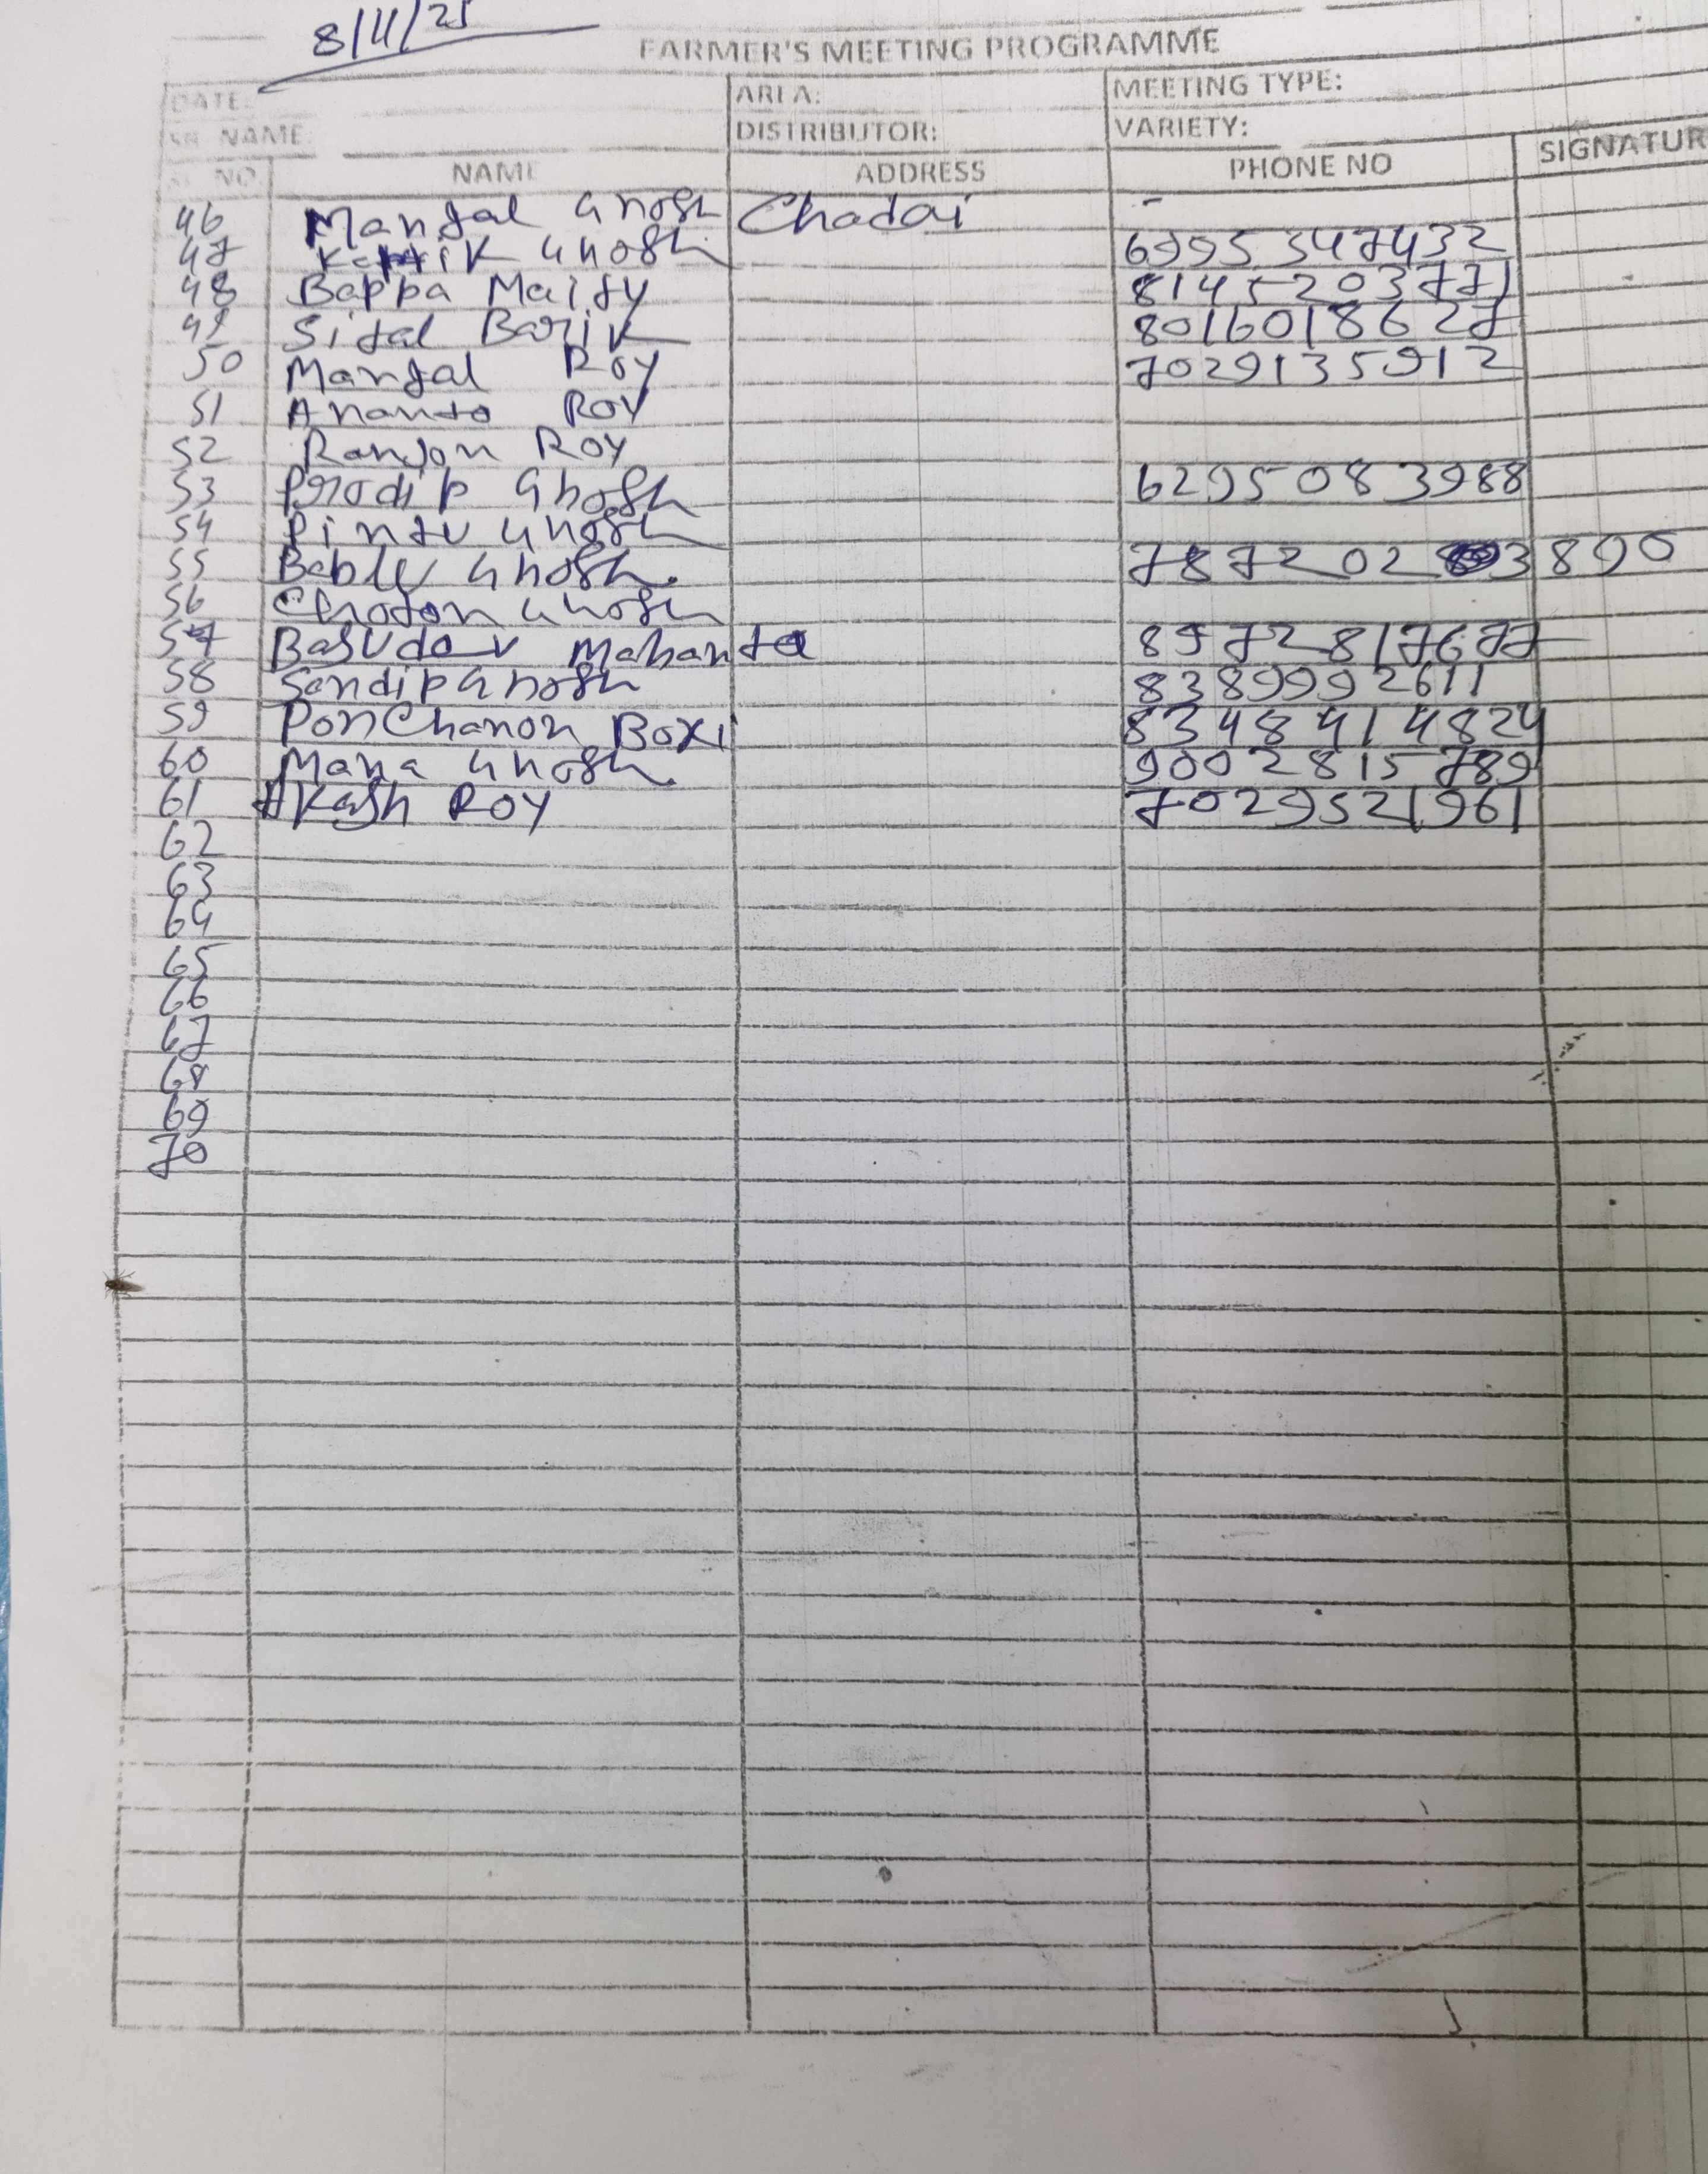 8/11/25
FARMER'S MEETING PROGRAMME
DATE: AREA: MEETING TYPE:
SR. NAME: DISTRIBUTOR: VARIETY:
SL. NO. NAME ADDRESS PHONE NO SIGNATUR
46 Mangal Ghosh Chadai -
47 Kartik Ghosh 69953474432
48 Bappa Maity 8145203771
49 Sital Barik 8016018627
50 Mangal Roy 7029135912
51 Ananto Roy
52 Ranjon Roy
53 Prodip Ghosh 6295083988
54 Pintu Ghosh
55 Bablu Ghosh. 7872023890
56 Choton Ghosh
57 Basudav Mahanta 8972817677
58 Sandip Ghosh 8389992611
59 PonChanon Boxi 8348414824
60 Mana Ghosh. 9002815789
61 Akash Roy 7029521961
62
63
64
65
66
67
68
69
70